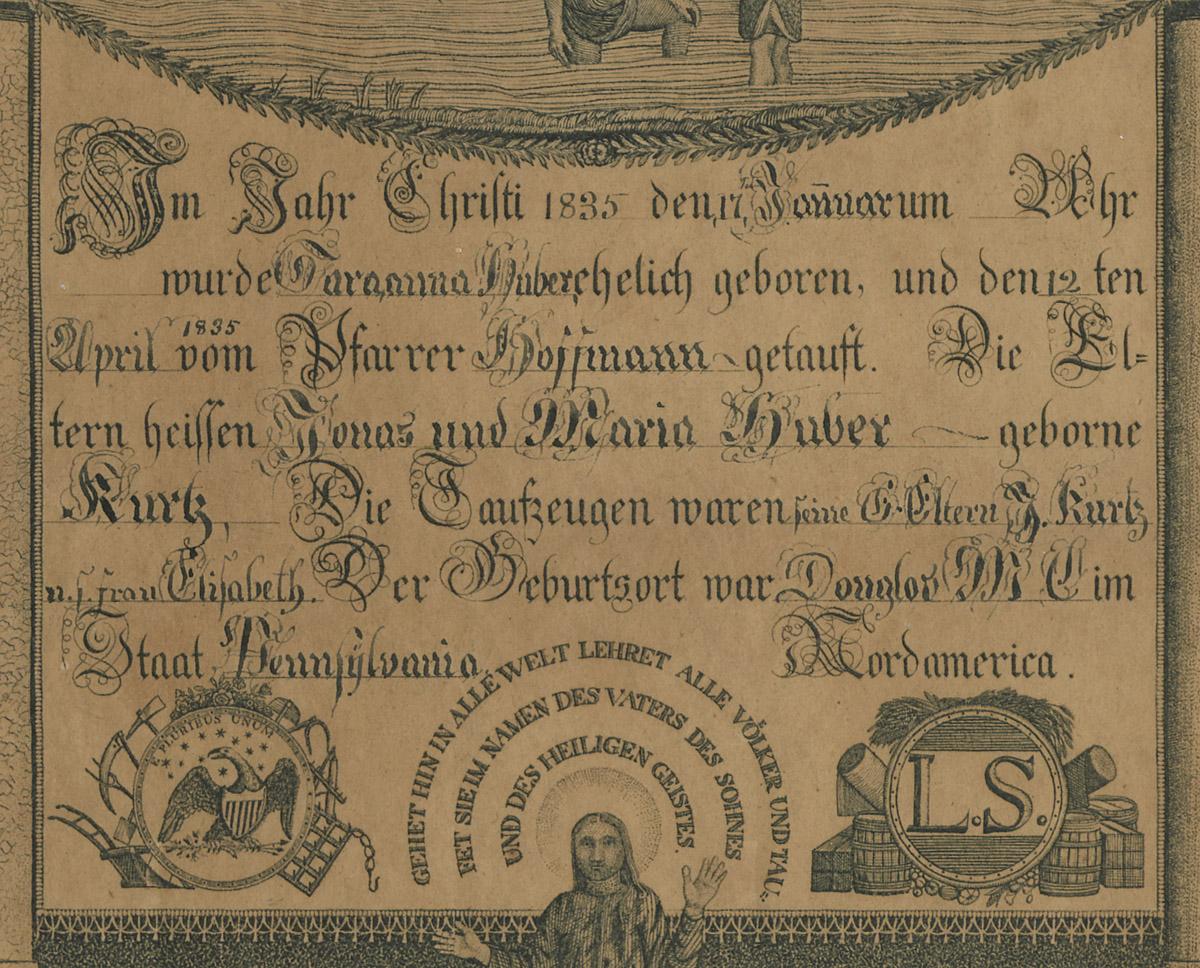 Im Jahr Christi 1835 den 17 Januar um Uhr
wurde Saraanna Huber ehelich geboren, und den 12 ten
April 1835 vom Pfarrer Hoffmann getauft. Die El=
tern heissen Jonas und Maria Huber geborne
Kurtz, Die Taufzeugen waren seine G. Eltern J. Kurtz
u. s. frau Elisabeth. Der Geburtsort war Douglas M C im
Staat Pennsylvania Nordamerica.
PLURIBUS UNUM
GEHET HIN IN ALLE WELT LEHRET ALLE VÖLKER UND TAU:
FET SIE IM NAMEN DES VATERS DES SOHNES
UND DES HEILIGEN GEISTES.
L.S.